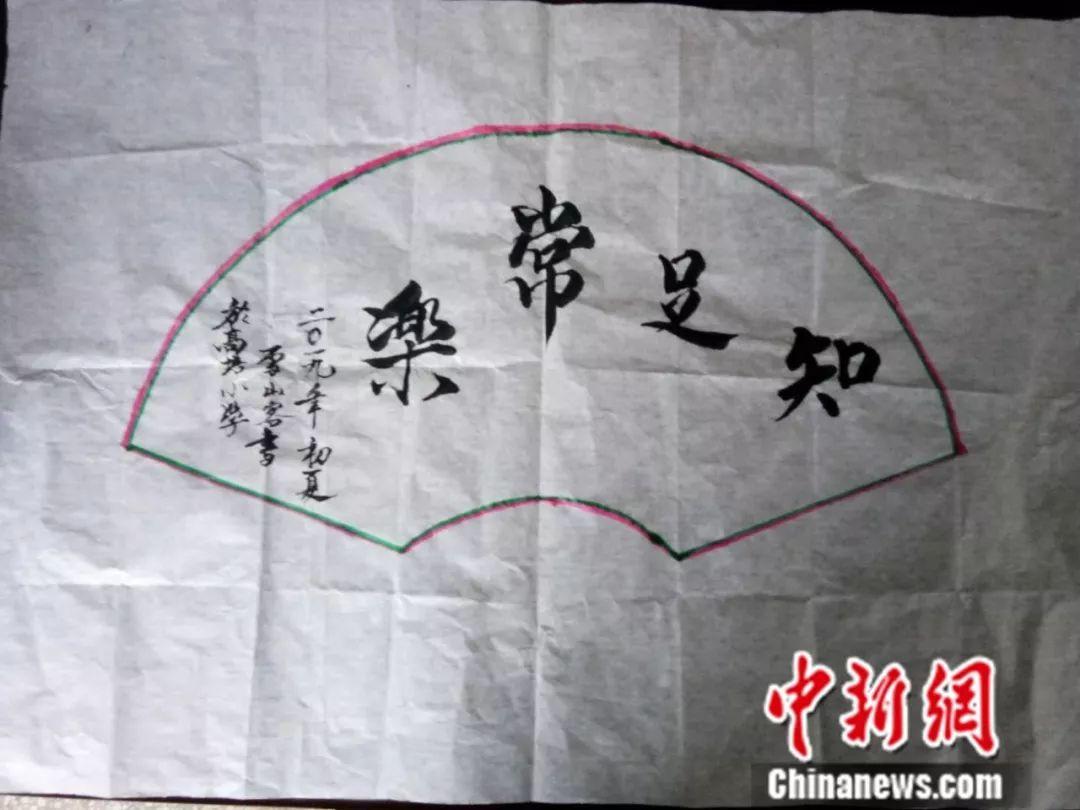 知足常樂
二〇一九年初夏
雪山客書
於高塔小學
中新網
Chinanews.com